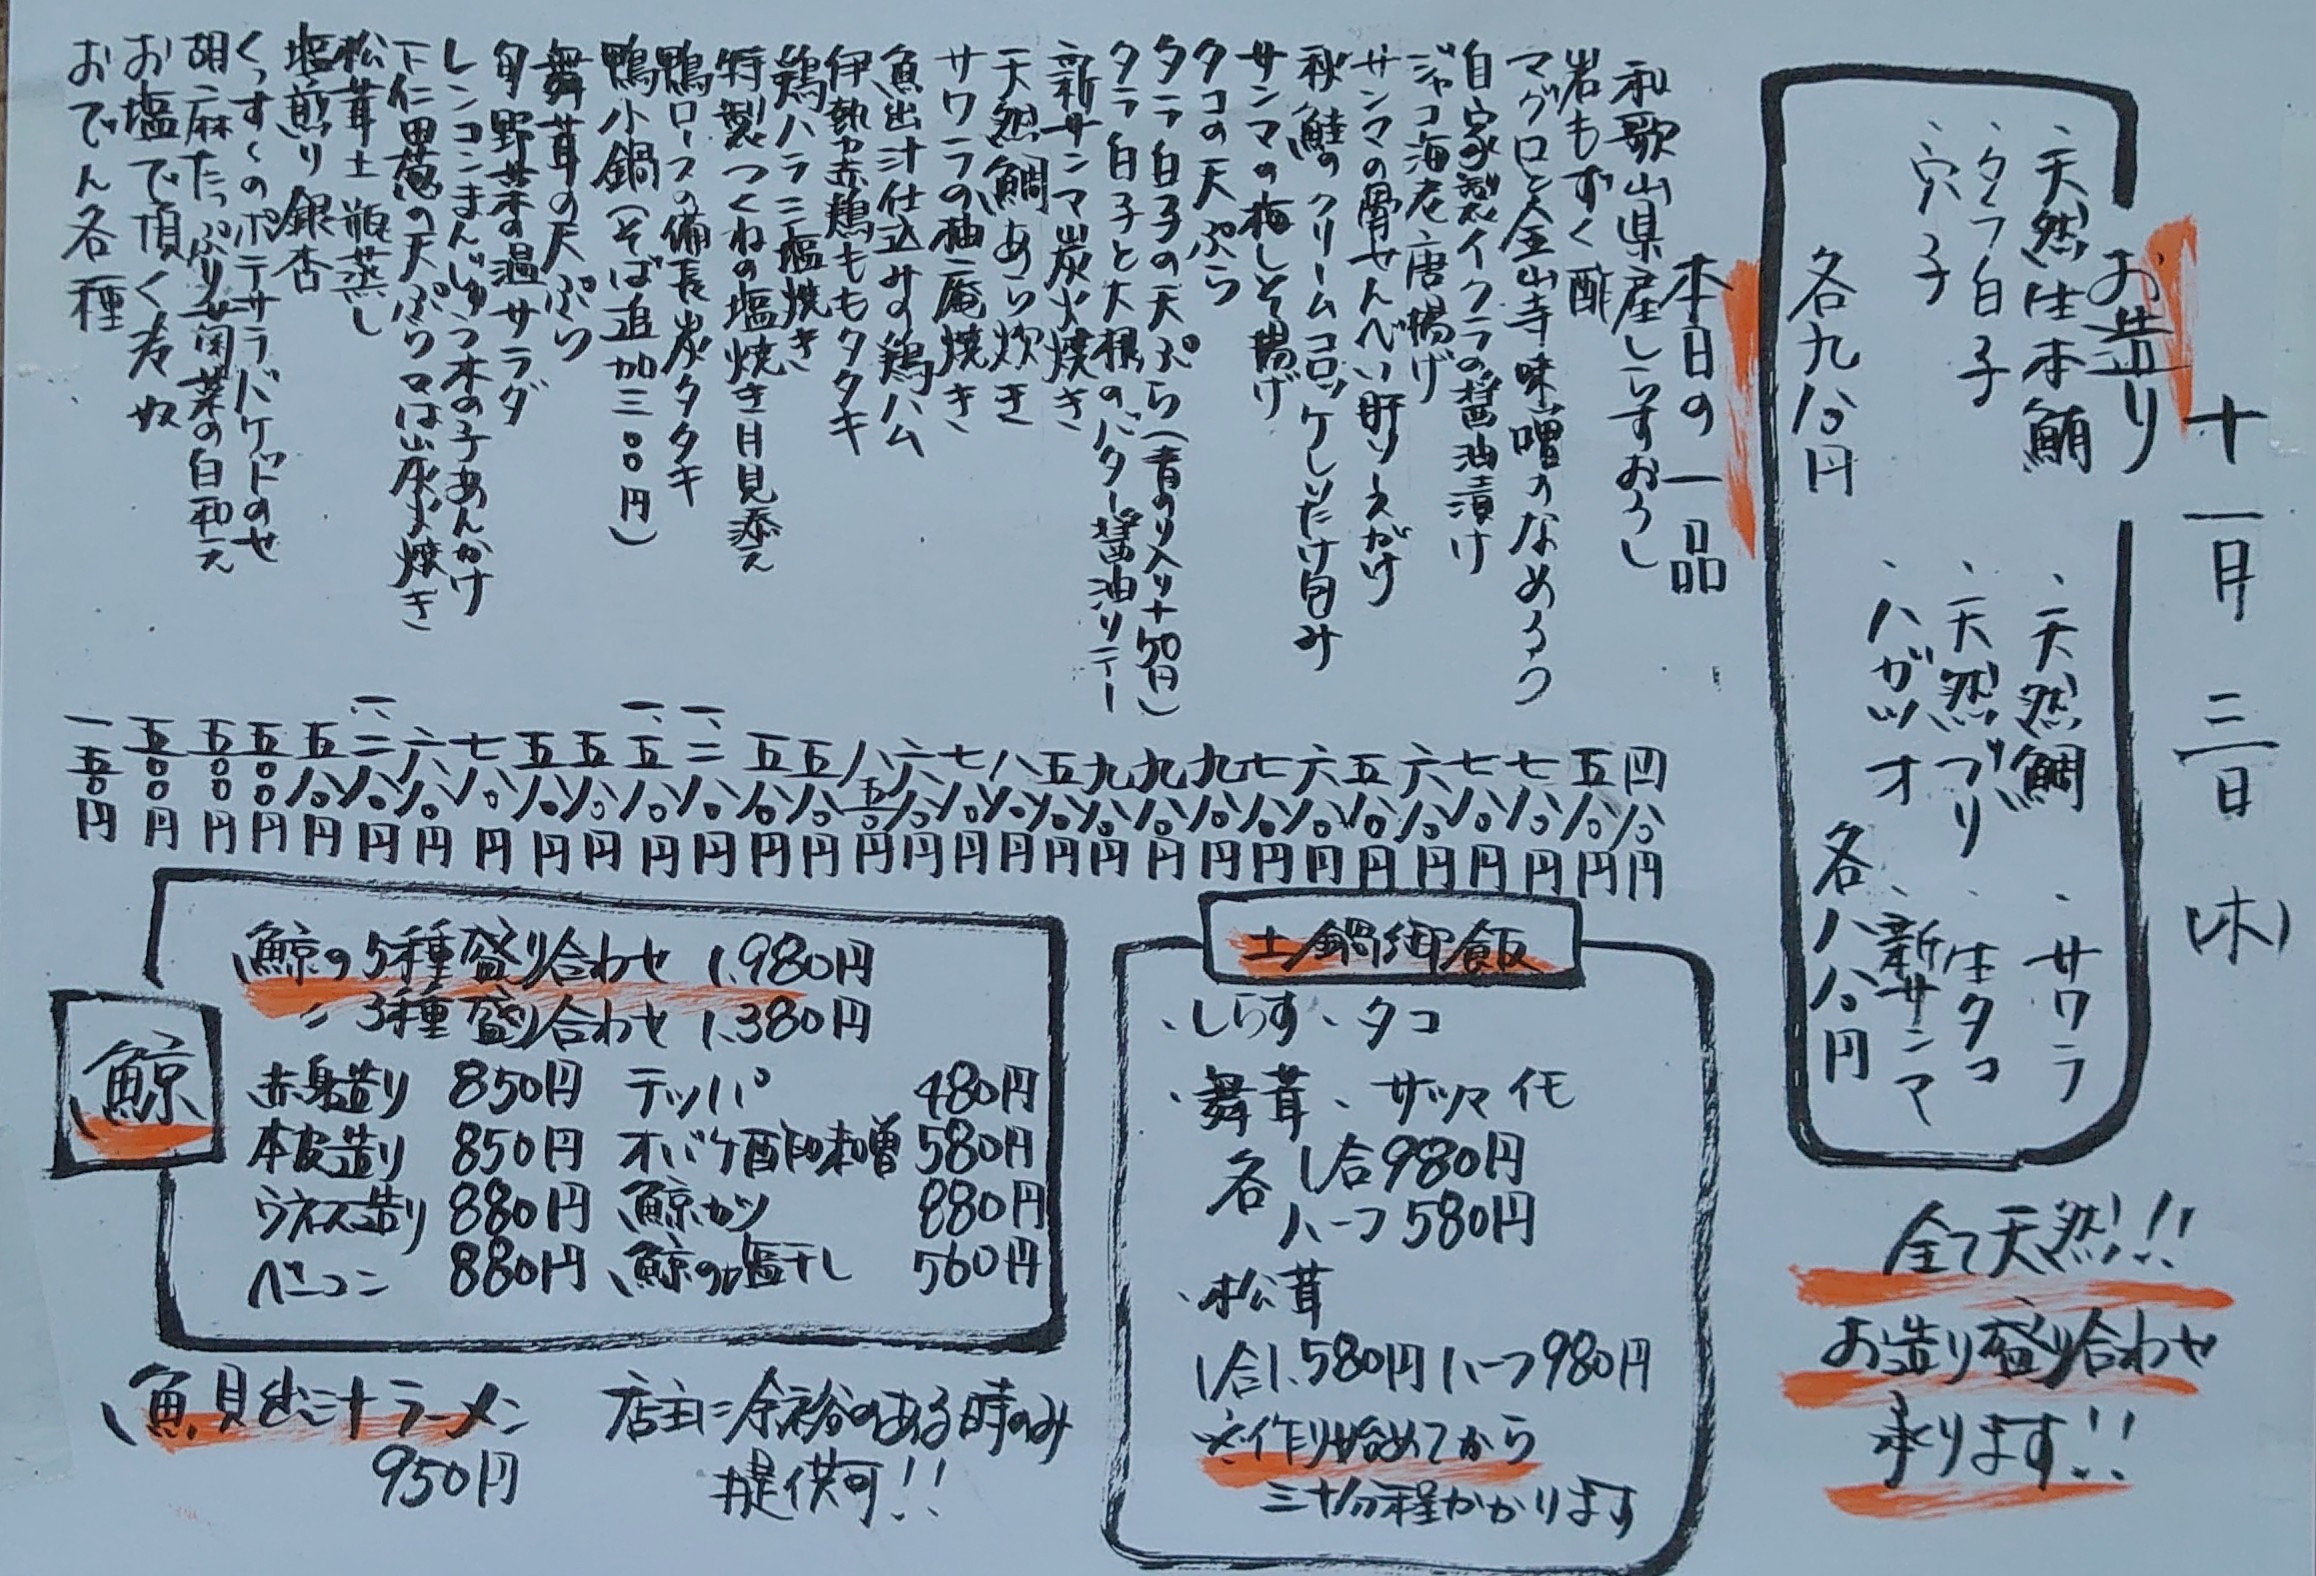 十一月三日(木)
お造り
、天然生本鮪
、タラ白子
、穴子
各九八〇円
、天然鯛
、天然ぶり
、ハガツオ
、サワラ
、生タコ
、新サンマ
各八八〇円
全て天然!!
お造り盛り合わせ
承ります!!
本日の一品
和歌山県産しらすおろし 四八〇円
岩もずく酢 五八〇円
マグロと金山寺味噌のなめろう 七八〇円
自家製イクラの醤油漬け 七八〇円
ジャコ海老唐揚げ 六八〇円
サンマの骨せんべい肝ソースがけ 五八〇円
秋鮭のクリームコロッケしいたけ包み 六八〇円
サンマの梅しそ揚げ 七八〇円
タコの天ぷら 九八〇円
タラ白子の天ぷら(青のり入り+50円) 九八〇円
タラ白子と大根のバター醤油ソテー 九八〇円
新サンマ炭火焼き 五八〇円
天然鯛あら炊き 八八〇円
サワラの柚庵焼き 七八〇円
魚出汁仕込みの鶏ハム 六八〇円
伊勢赤鶏ももタタキ 八五〇円
鶏ハラミ塩焼き 五八〇円
特製つくねの塩焼き月見添え 五八〇円
鴨ロースの備長炭タタキ 一、二八〇円
鴨小鍋(そば追加三〇〇円) 一、五八〇円
舞茸の天ぷら 五八〇円
旬野菜の温サラダ 五八〇円
レンコンまんじゅう木の子あんかけ 七八〇円
下仁田葱の天ぷら又は炭火焼き 六八〇円
松茸土瓶蒸し 一、二八〇円
塩煎り銀杏 五八〇円
くっすぃのポテサラバケットのせ 五〇〇円
胡麻たっぷり春菊の白和え 五〇〇円
お塩で頂く冷奴 五〇〇円
おでん各種 一五〇円
土鍋御飯
、しらす、タコ
、舞茸、サツマイモ
各 1合980円
ハーフ580円
、松茸
1合1.580円 ハーフ980円
※作り始めてから
三十分程かかります
鯨
鯨の5種盛り合わせ 1.980円
〃 3種盛り合わせ 1.380円
赤身造り 850円 テッパ 480円
本皮造り 850円 オバケ酢味噌 580円
ウネス造り 880円 鯨カツ 880円
ベーコン 880円 鯨の塩干し 560円
魚貝出汁ラーメン
950円
店主に余裕のある時のみ
提供可!!